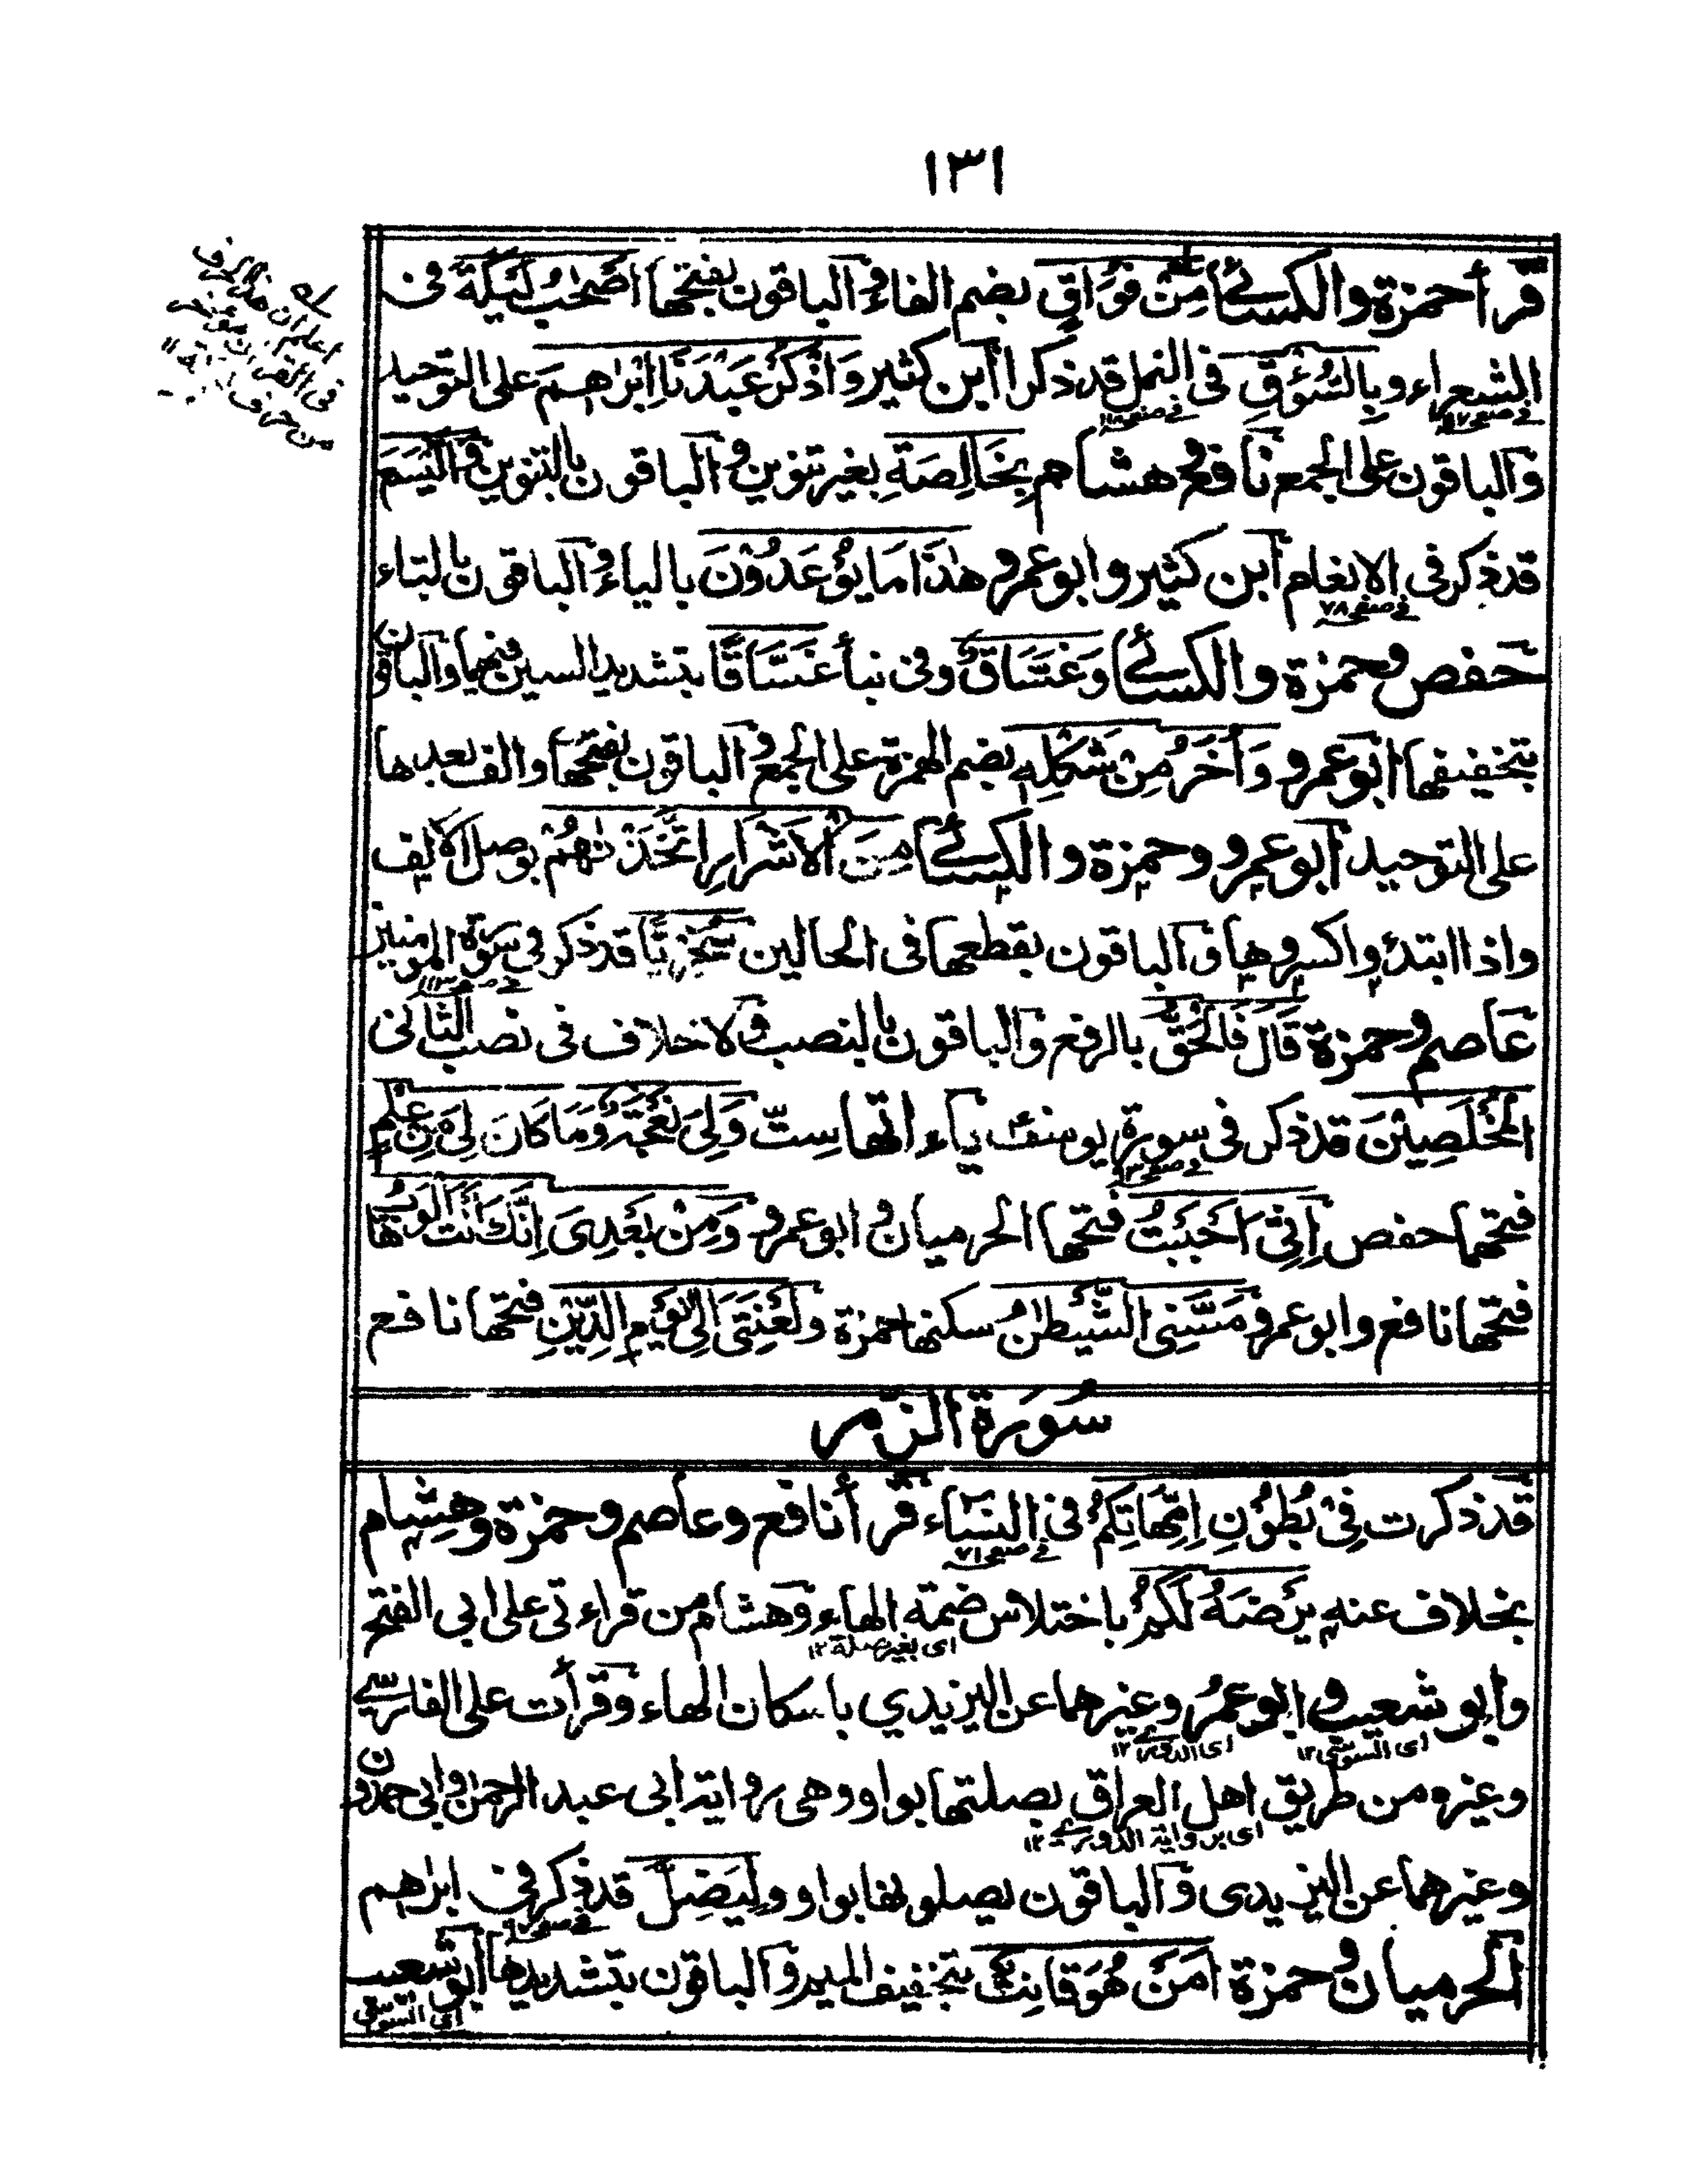 ١٣١
قرأ حمزة والكسائي مِنْ فُوَاقٍ بضم الفاء والباقون بفتحها اَصْحٰبُ لْئَيْكَةِ فى
الشعراء وبِالسُّؤْقِ فى النمل قد ذكرا ابن كثير وَاذْكُرْ عَبْدَنَا اِبْرٰهِيْمَ على التوحيد
والباقون على الجمع نافع وهشام بِخَالِصَةِ بغير تنوين والباقون بالتنوين وَالْيَسَعَ
قد ذكر فى الانعام ابن كثير وابو عمرو هٰذَا مَا يُوْعَدُوْنَ بالياء والباقون بالتاء
حفص وحمزة والكسائي وَغَسَّاقٌ وفى نبأ غَسَّاقًا بتشديد السين فيهما والباقون
بتخفيفها ابو عمرو وَاُخَرُ مِنْ شَكْلِهٖ بضم الهمزة على الجمع والباقون بفتحها والف بعدها
على التوحيد ابو عمرو وحمزة والكسائي مِنَ الْاَشْرَارِ اتَّخَذْنٰهُمْ بوصل الالف
واذا ابتدؤا كسروها والباقون بقطعها فى الحالين سُخْرِيًّا قد ذكر فى سورة المؤمنين
عاصم وحمزة قَالَ فَالْحَقُّ بالرفع والباقون بالنصب ولا خلاف فى نصب الثانى
الْمُخْلَصِيْنَ قد ذكر فى سورة يوسف ياءاتها ستّ وَلِىَ نَعْجَةٌ وَمَا كَانَ لِىَ مِنْ عِلْمٍ
فتحهما حفص اِنِّىْ اَحْبَبْتُ فتحها الحرميان وابو عمرو وَمِنْ بَعْدِىَ اِنَّكَ اَنْتَ الْوَهَّابُ
فتحها نافع وابو عمرو مَسَّنِىَ الشَّيْطٰنُ سكنها حمزة ولَعْنَتِىْ اِلٰى يَوْمِ الدِّيْنِ فتحها نافع
سُورَة الزّمر
قد ذكرت فِىْ بُطُوْنِ اِمَّهَاتِكُمْ فى النساء قرأ نافع وعاصم وحمزة وهشام
بخلاف عنه يَرْضَهُ لَكُمْ باختلاس ضمة الهاء وهشام من قراءتى على ابى الفتح
اى بغير صلة ١٢
وابو شعيب وابو عمر وغيرهما عن اليزيدي باسكان الهاء وقرأت على الفارسي
اى السوسي ١٢ اى الدوري ١٢
وغيره من طريق اهل العراق بصلتها بواو وهى رواية ابى عبد الرحمن وابى حمدون
اى برواية الدوري ١٢
وغيرهما عن اليزيدى والباقون يصلونها بواو ولِيَضِلَّ قد ذكر فى ابرٰهيم
الحرميان وحمزة اَمَنْ هُوَ قَانِتٌ بتخفيف الميم والباقون بتشديدها ابو شعيب
اى السوسي